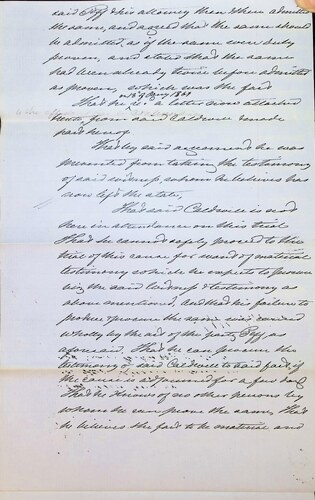 said Pff & his attorney then & there admitted
the same, and agreed that the same should
be admitted, as if the same were duly
proven, and stated that the same
had been already twice before admitted
as proven, which was the fact
on 18th May 1861
That he a letter cross attached
from said Caldwell
paid
That by said agreement he was
prevented from taking the testimony
of said whom he believes has
now left the state,
That said Caldwell is not
here in attendance on this trial
That he cannot safely proceed to the
trial of this cause for want of material
testimony which he expects to procure
by the said & testimony as
above mentioned, and that his failure to
produce & procure the same was caused
wholly by the act of the party Pff, as
aforesaid. That he can procure the
testimony of said Caldwell to said fact, if
the cause is adjourned for a few days
That he knows of no other persons by
whom he can prove the same, that
he believes the fact to be material and